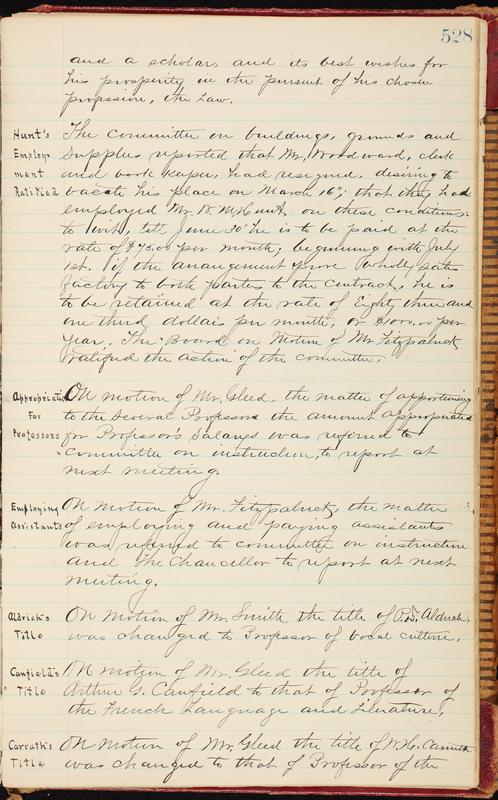 528
and a scholar, and its best wishes for
his prosperity in the pursuit of his chosen
profession, the Law.
Hunt's Employment Ratified
The committee on buildings, grounds and
Supplies reported that Mr. Woodward, clerk
and book keeper, had resigned, desiring to
vacate his place on March 16; that they had
employed Mr. Hunt, on these conditions:
to wit, till June 30 he is to be paid at the
rate of $75.00 per month; beginning with July
1st. if the arrangement prove wholly satis
factory to both parties to the contract, he is
to be retained at the rate of Eighty three and
one third dollars per month, or $1000.00 per
year. The Board on Motion of Mr Fitzpatrick
ratified the action of the committee.
Appropriation For Professors
On motion of Mr. Gleed, the matter of apportioning
to the several Professors the amount appropriated
for Professor's Salarys was referred to
committee on instruction, to report at
next meeting.
Employing Assistants
On motion of Mr. Fitzpatrick, the matter
of employing and paying assistants
was referred to committee on instruction
and the Chancellor to report at next
meeting.
Aldrich's Title
On Motion of Mr. Smith the title of Aldrich
was changed to Professor of vocal culture.
Canfield's Title
On motion of Mr. Gleed the title of
Arthur G. Canfield to that of Professor of
the French Language and Literature.
Carruth's Title
On motion of Mr. Gleed the title of W.H. Carruth
was changed to that of Professor of the